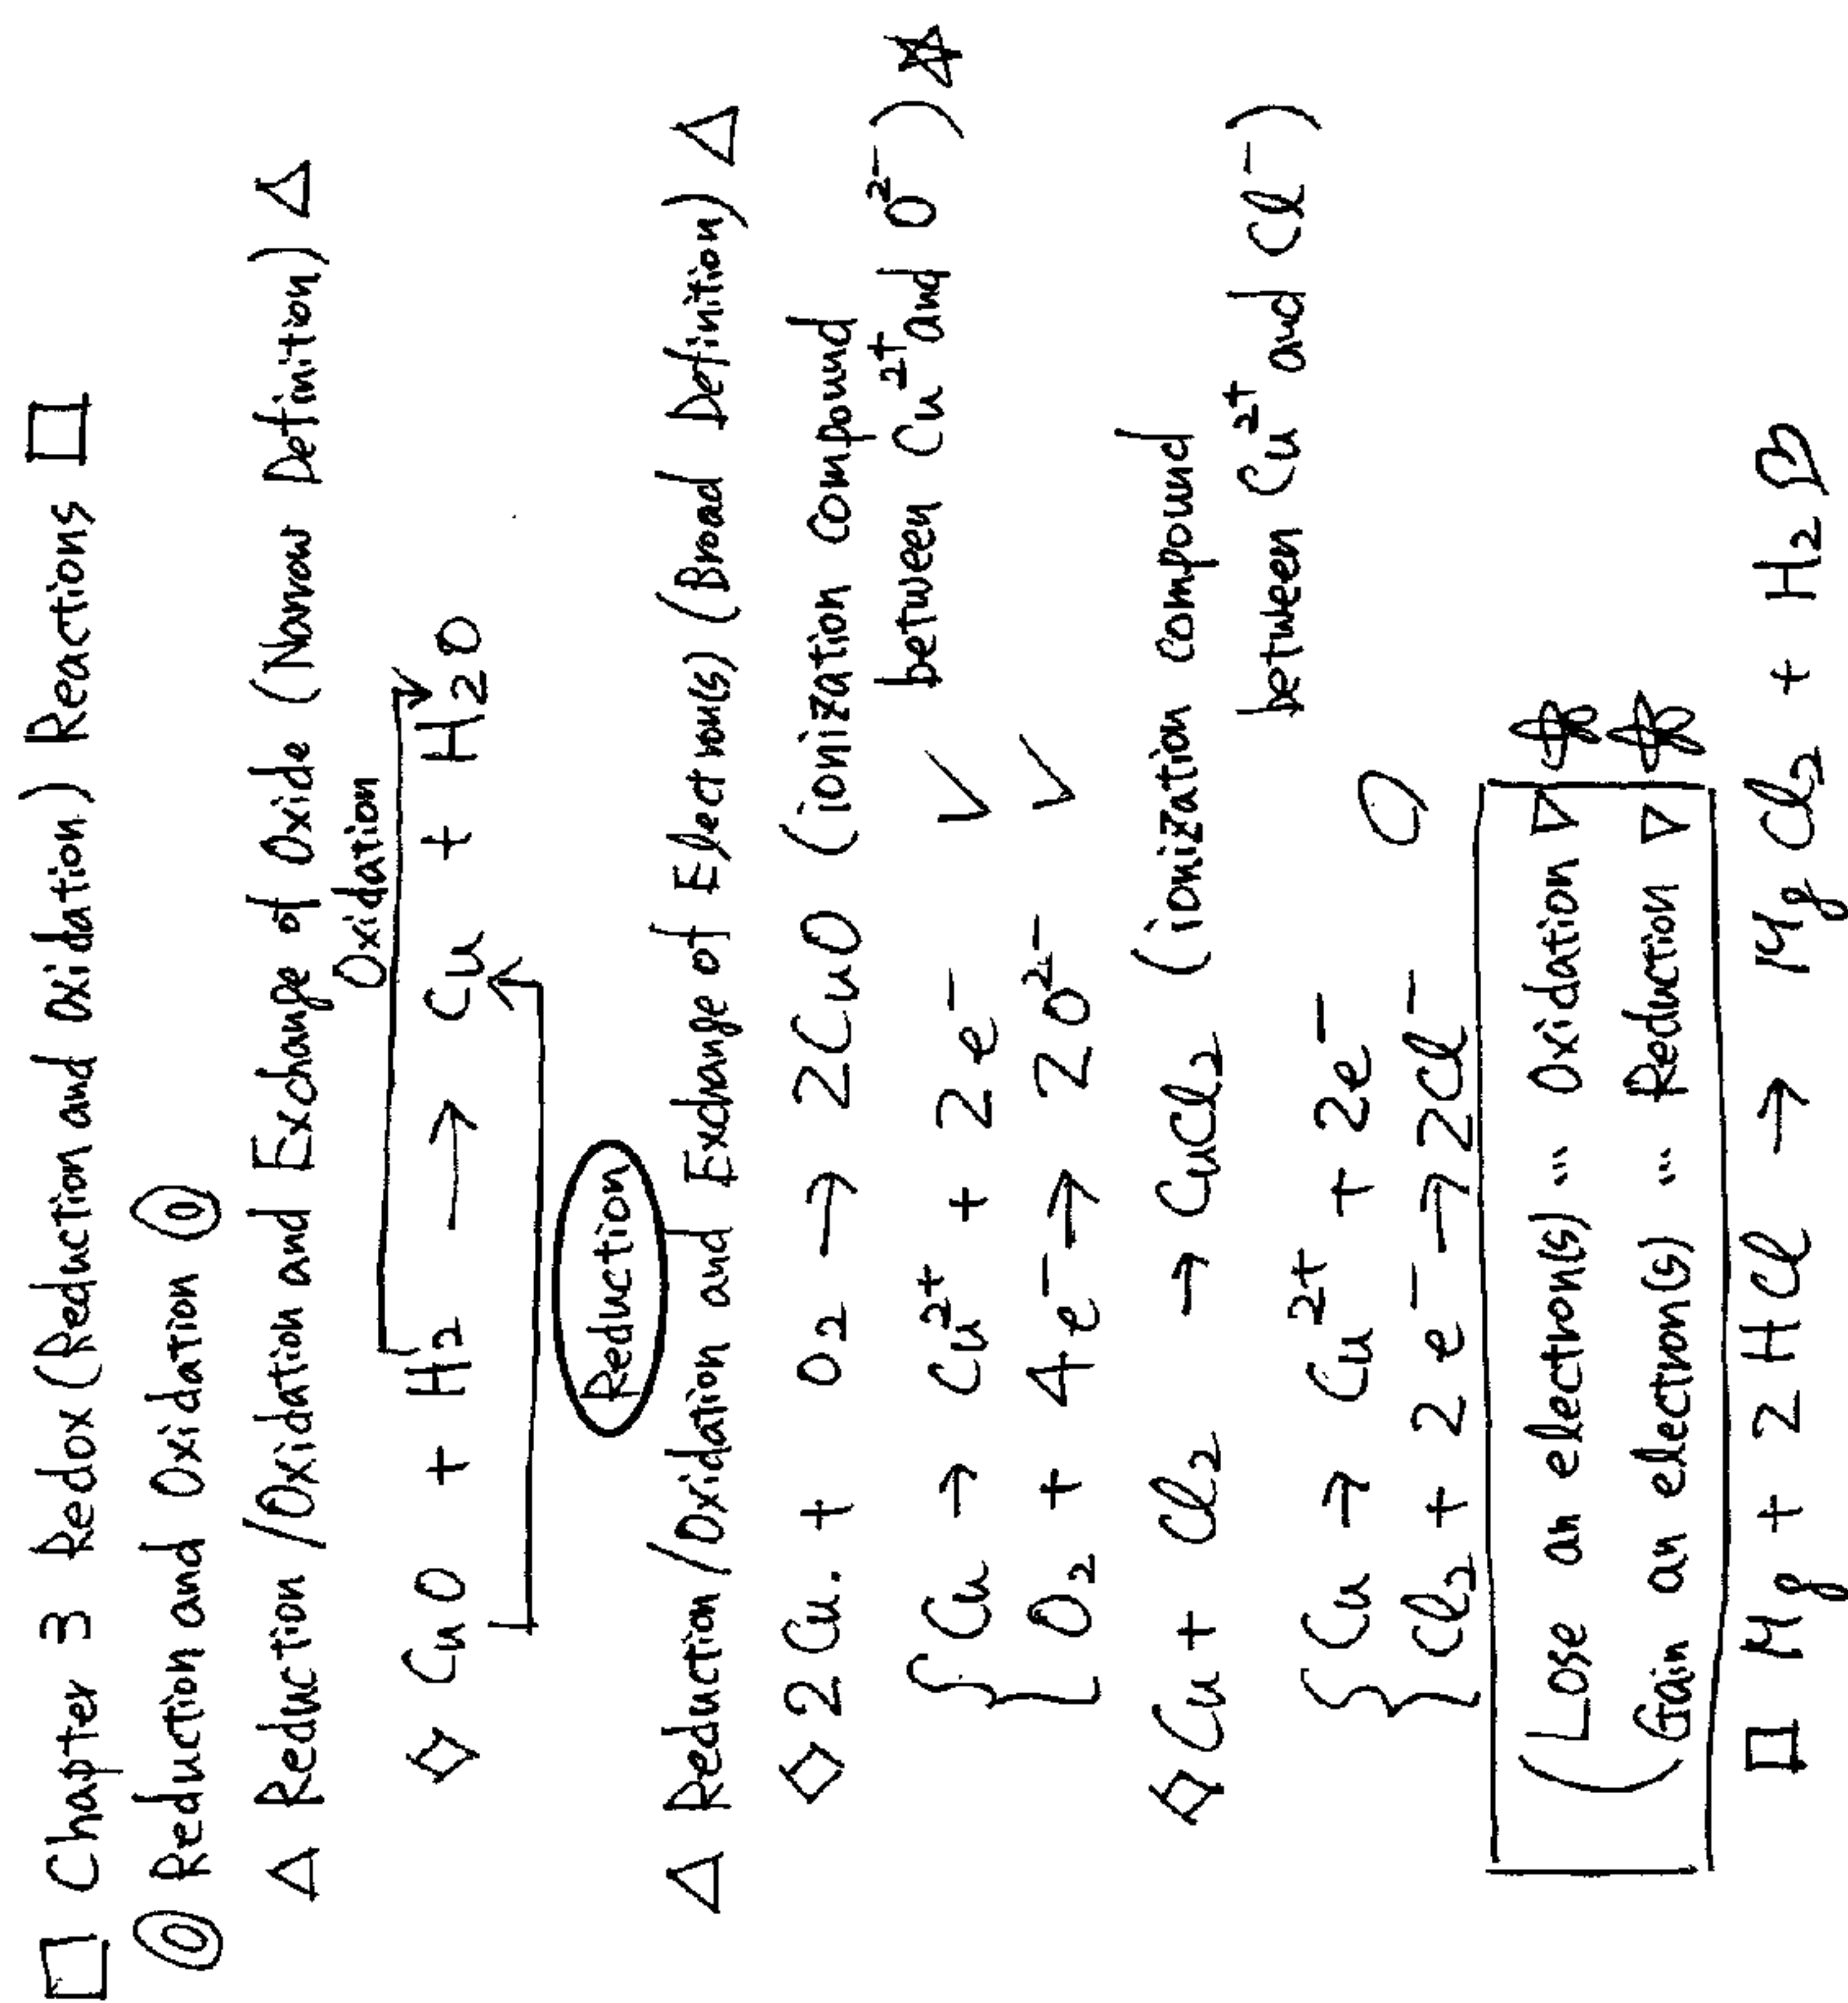 □ Chapter 3 Redox (Reduction and Oxidation) Reactions □
◎ Reduction and Oxidation ◎
△ Reduction/Oxidation and Exchange of Oxide (Narrow Definition) △
Oxidation
◇ CuO + H₂ → Cu + H₂O
Reduction
△ Reduction/Oxidation and Exchange of Electron(s) (Broad Definition) △
◇ 2Cu. + O₂ → 2CuO (ionization compound
between Cu²⁺ and O²⁻) ☆
{ Cu → Cu²⁺ + 2e⁻ ✓
O₂ + 4e⁻ → 2O²⁻ ✓
◇ Cu + Cl₂ → CuCl₂ (ionization compound
between Cu²⁺ and Cl⁻)
{ Cu → Cu²⁺ + 2e⁻
Cl₂ + 2e⁻ → 2Cl⁻
( Lose an electron(s) ... Oxidation ▽
Gain an electron(s) ... Reduction ▽
□ Mg + 2HCl → MgCl₂ + H₂